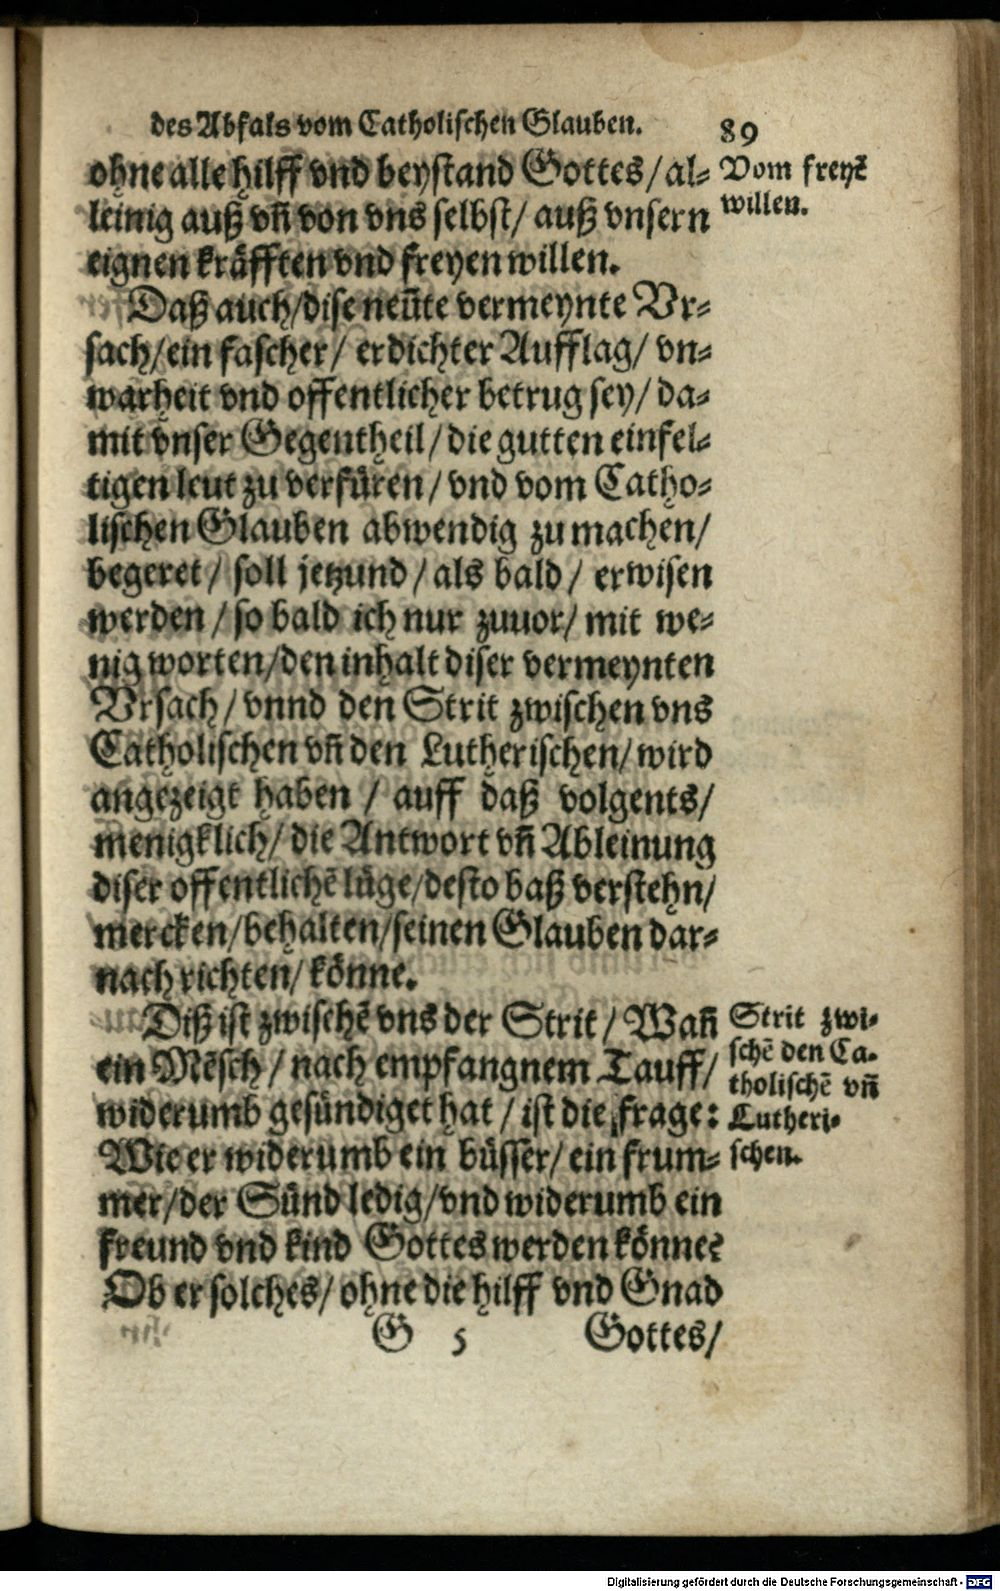 des Abfals vom Catholischen Glauben. 89
ohne alle hilff vnd beystand Gottes/ al⸗
leinig auß vn̄ von vns selbst/ auß vnsern
eignen kräfften vnd freyen willen.
Vom freyẽ
willen.
Daß auch/ dise neūte vermeynte Vr⸗
sach/ ein fascher/ erdichter Aufflag/ vn⸗
warheit vnd offentlicher betrug sey/ da⸗
mit vnser Gegentheil/ die gutten einfel⸗
tigen leut zu verfüren/ vnd vom Catho⸗
lischen Glauben abwendig zu machen/
begeret/ soll jetzund/ als bald/ erwisen
werden/ so bald ich nur zuuor/ mit we⸗
nig worten/ den inhalt diser vermeynten
Vrsach/ vnnd den Strit zwischen vns
Catholischen vn̄ den Lutherischen/ wird
angezeigt haben/ auff daß volgents/
menigklich/ die Antwort vn̄ Ableinung
diser offentlichẽ lüge/ desto baß verstehn/
mercken/ behalten/ seinen Glauben dar⸗
nach richten/ könne.
Diß ist zwischẽ vns der Strit/ Wan̄
ein Mẽsch/ nach empfangnem Tauff/
widerumb gesündiget hat/ ist die frage:
Wie er widerumb ein büsser/ ein frum⸗
mer/ der Sünd ledig/ vnd widerumb ein
freund vnd kind Gottes werden könne?
Ob er solches/ ohne die hilff vnd Gnad
Strit zwi⸗
schẽ den Ca⸗
tholischẽ vn̄
Lutheri⸗
schen.
G 5 Gottes/
Digitalisierung gefördert durch die Deutsche Forschungsgemeinschaft - DFG